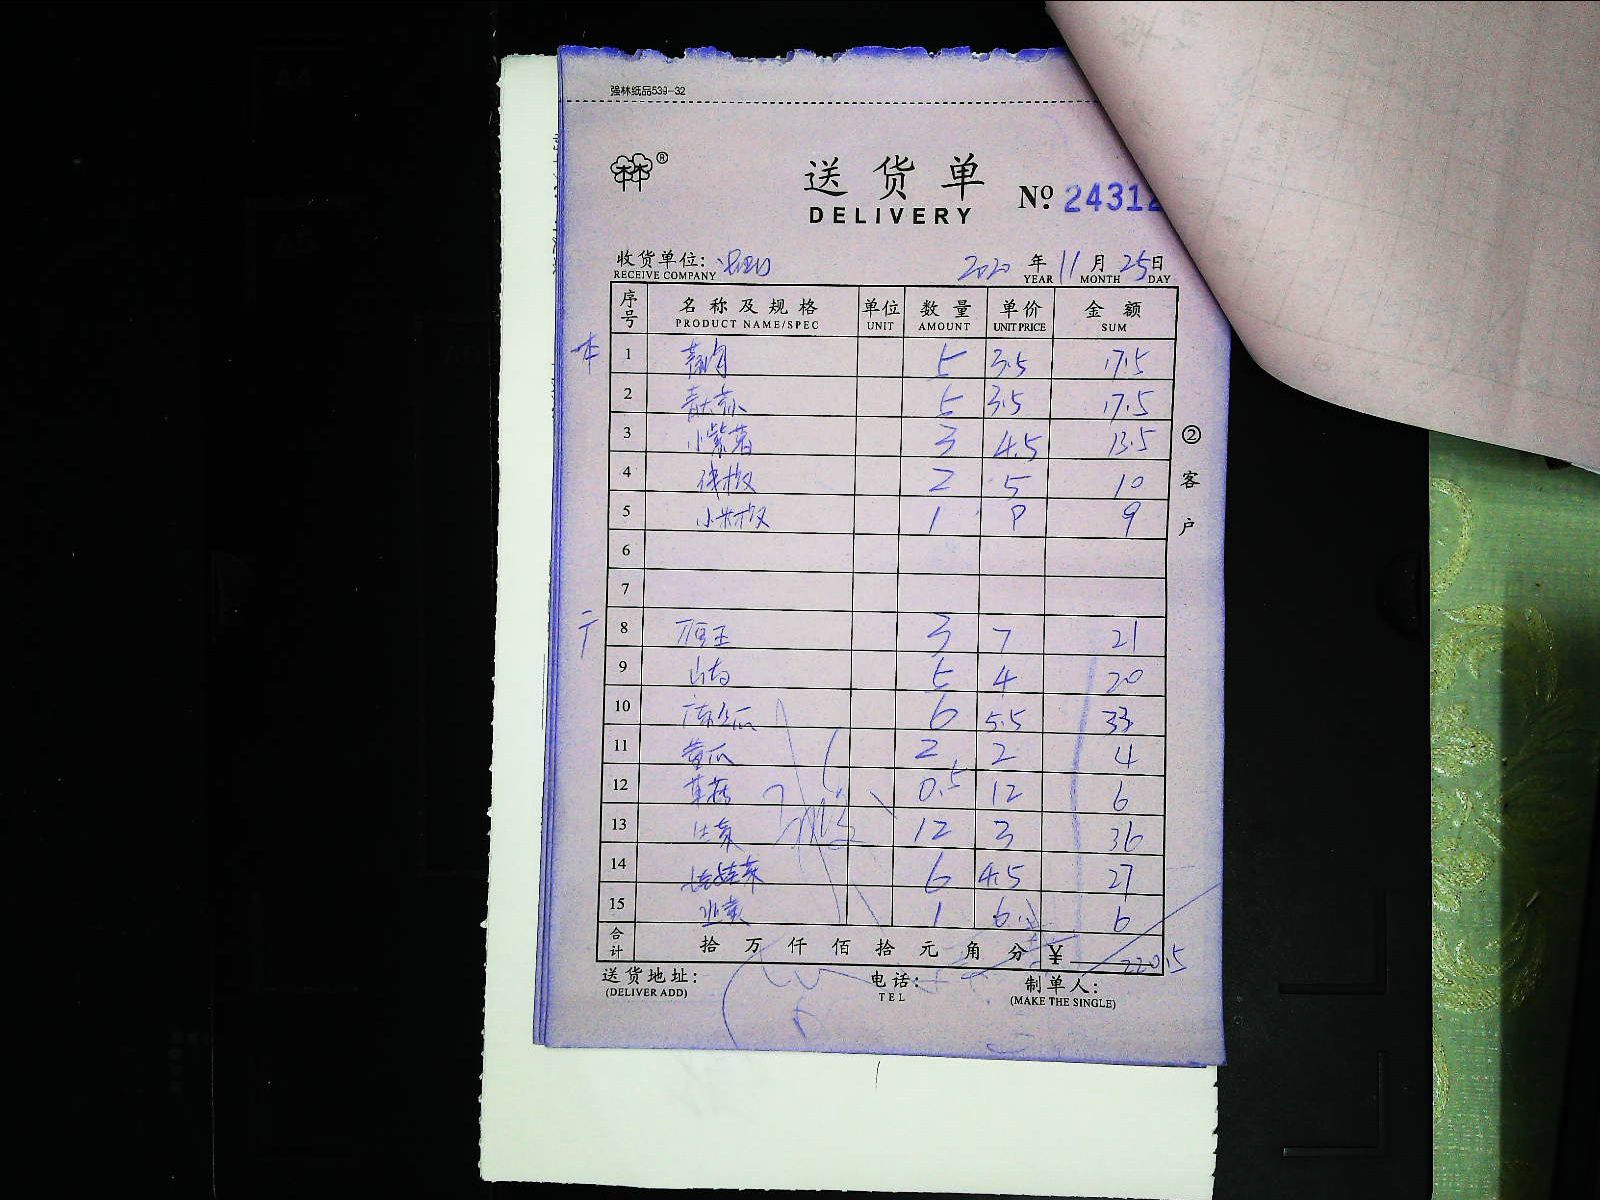 强林纸品539-32
送货单
DELIVERY
No. 2431
收货单位:
RECEIVE COMPANY
2020 年 11 月 25 日
YEAR MONTH DAY
序号 名称及规格 单位 数量 单价 金额
PRODUCT NAME/SPEC UNIT AMOUNT UNIT PRICE SUM
1 5 3.5 17.5
2 5 3.5 17.5
3 小紫茄 3 4.5 13.5
4 线椒 2 5 10
5 小米椒 1 9 9
6
7
8 3 7 21
9 5 4 20
10 6 5.5 33
11 黄瓜 2 2 4
12 草菇 0.5 12 6
13 12 3 36
14 6 4.5 27
15 韭黄 1 6 6
合计 拾 万 仟 佰 拾 元 角 分 ¥ 220.5
送货地址: 电话: 制单人:
(DELIVER ADD) TEL (MAKE THE SINGLE)
②客户